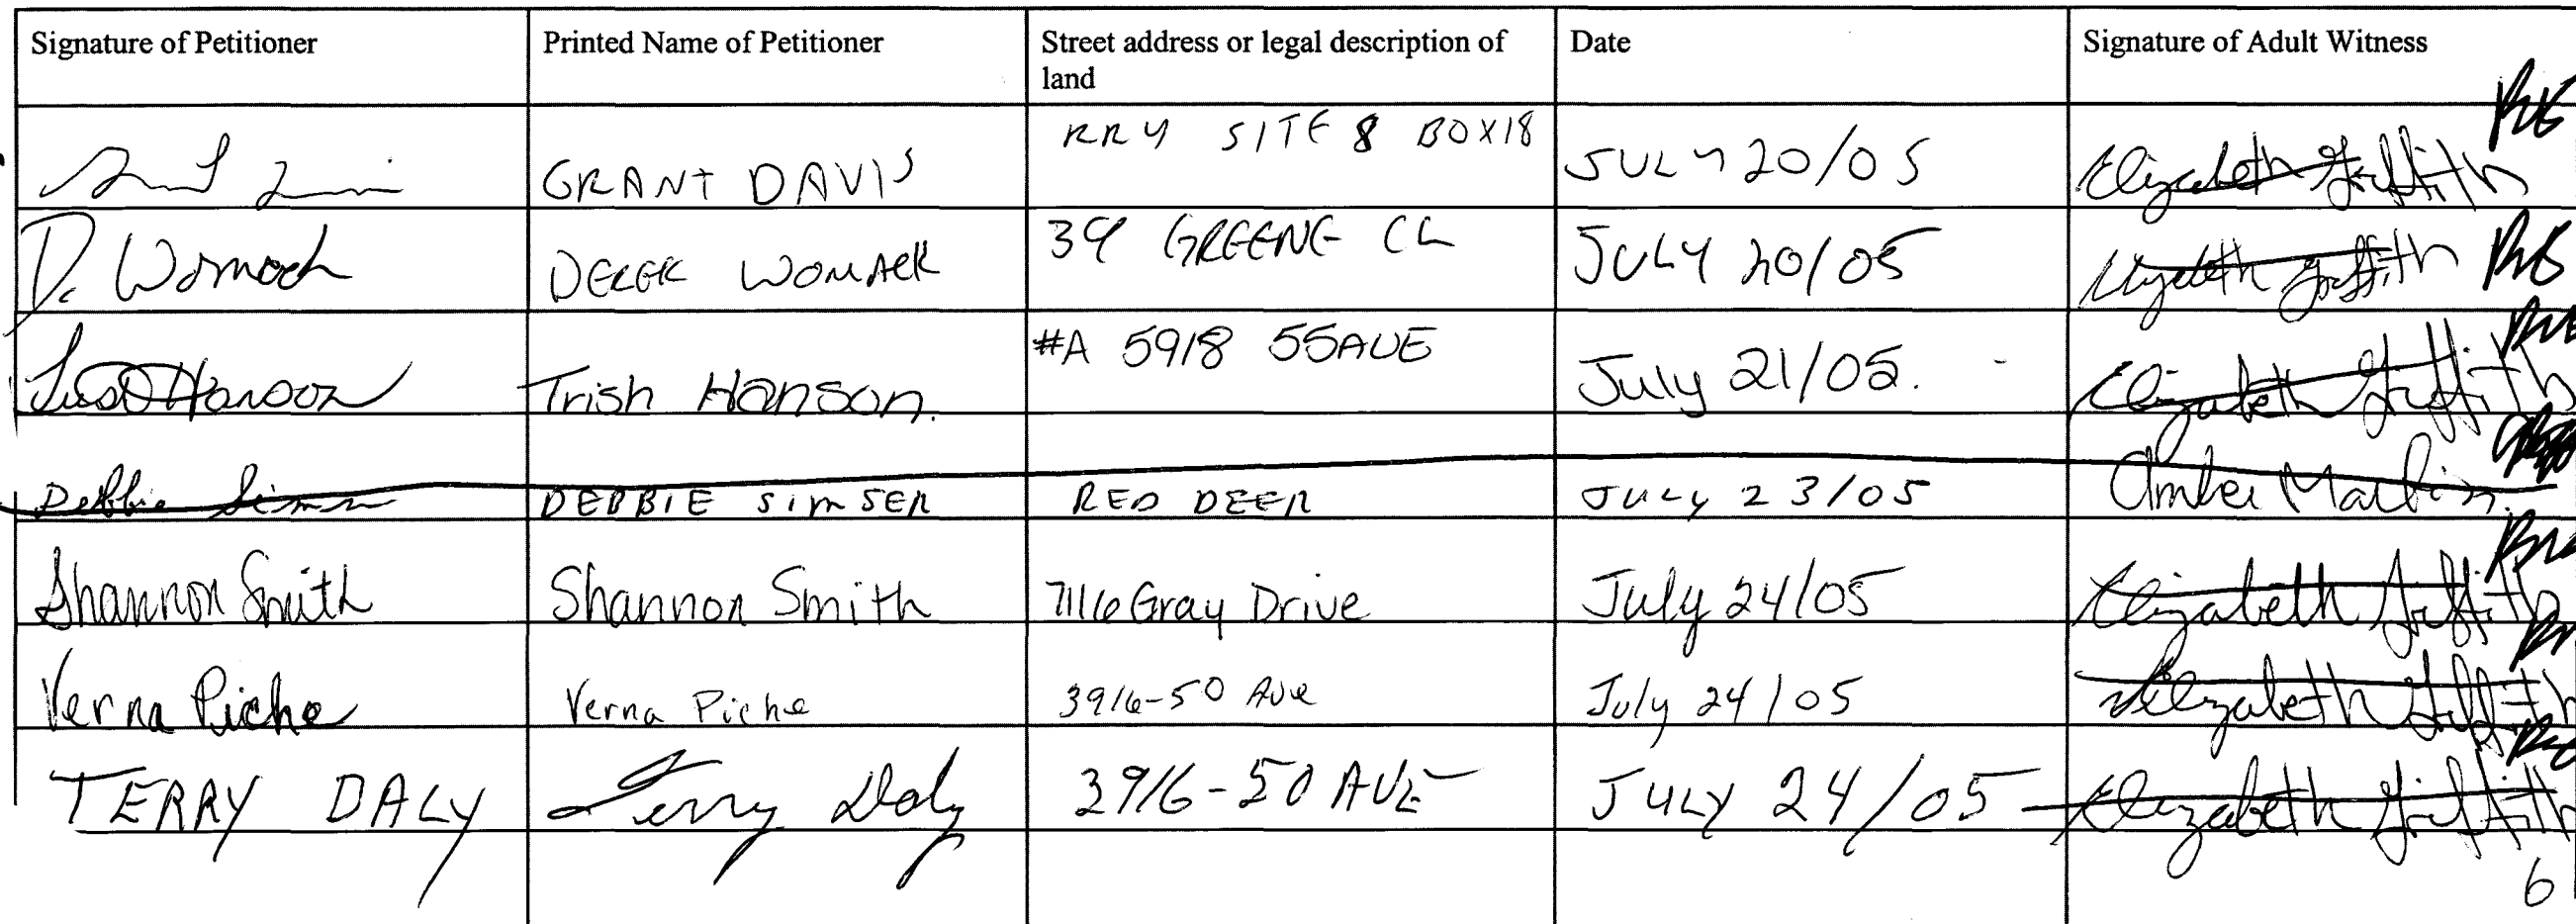 Signature of Petitioner Printed Name of Petitioner Street address or legal description of land Date Signature of Adult Witness
GRANT DAVIS RR4 SITE 8 BOX18 JULY 20/05 Elizabeth Griffith
D. Womack DEREK WOMACK 39 GREENE CL JULY 20/05 Elizabeth Griffith
Hanson Trish Hanson. #A 5918 55AVE July 21/05. Elizabeth Griffith
Debbie Simser DEBBIE SIMSER RED DEER JULY 23/05 Amber Martin
Shannon Smith Shannon Smith 7116 Gray Drive July 24/05 Elizabeth Griffith
Verna Piche Verna Piche 3916-50 Ave July 24/05 Elizabeth Griffith
TERRY DALY Terry Daly 3916-50 AVE JULY 24/05 Elizabeth Griffith
6